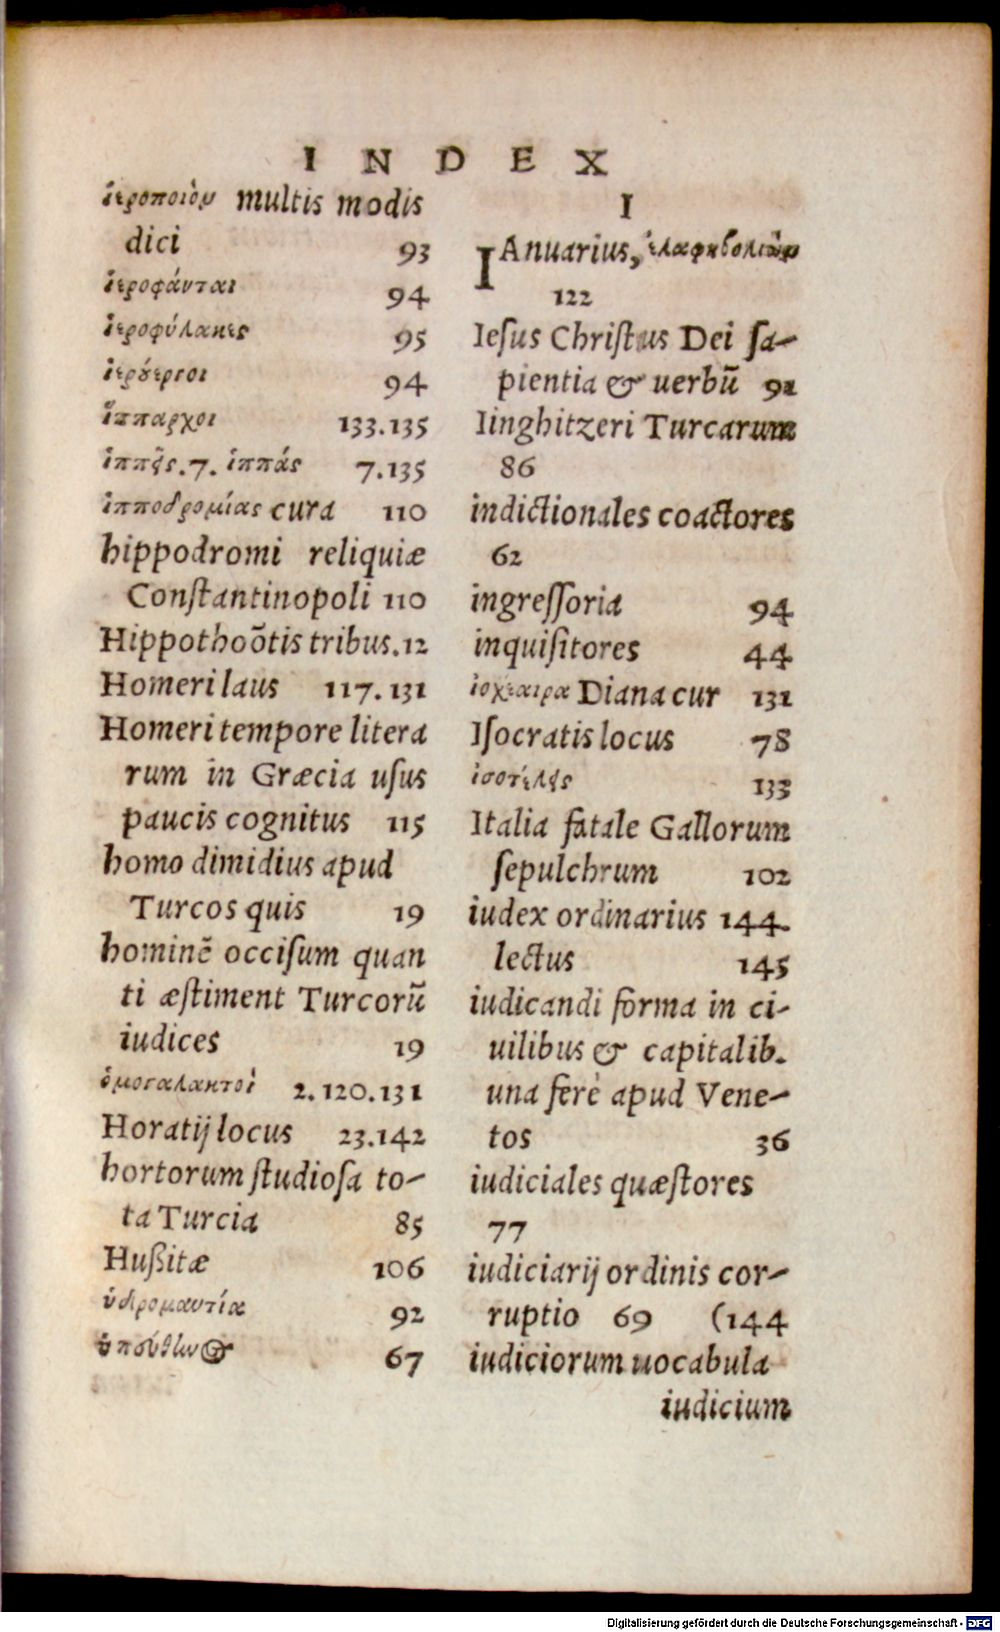 INDEX
ἱεροποιὸν multis modis
dici 93
ἱεροφάνται 94
ἱεροφύλακες 95
ἱερȣργοι 94
ἵππαρχοι 133.135
ἱππῆς.7. ἱππάς 7.135
ἱπποδρομίας cura 110
hippodromi reliquiæ
Conſtantinopoli 110
Hippothoõtis tribus. 12
Homeri laus 117.131
Homeri tempore litera
rum in Græcia uſus
paucis cognitus 115
homo dimidius apud
Turcos quis 19
hominẽ occiſum quan
ti æſtiment Turcorũ
iudices 19
ὁμογαλακτοὶ 2.120.131
Horatij locus 23.142
hortorum ſtudioſa to-
ta Turcia 85
Hußitæ 106
ὑδρομαντία 92
67
I
IAnuarius, ἐλαφηβολιὼν
122
Ieſus Chriſtus Dei ſa-
pientia & uerbũ 91
Iinghitzeri Turcarum
86
indictionales coactores
62
ingreſſoria 94
inquiſitores 44
ἰοχέαιρα Diana cur 131
Iſocratis locus 78
ἰσοτελὴς 133
Italia fatale Gallorum
ſepulchrum 102
iudex ordinarius 144.
lectus 145
iudicandi forma in ci-
uilibus & capitalib.
una ferè apud Vene-
tos 36
iudiciales quæſtores
77
iudiciarij ordinis cor-
ruptio 69 (144
iudiciorum uocabula
iudicium
Digitalisierung gefördert durch die Deutsche Forschungsgemeinschaft - DFG